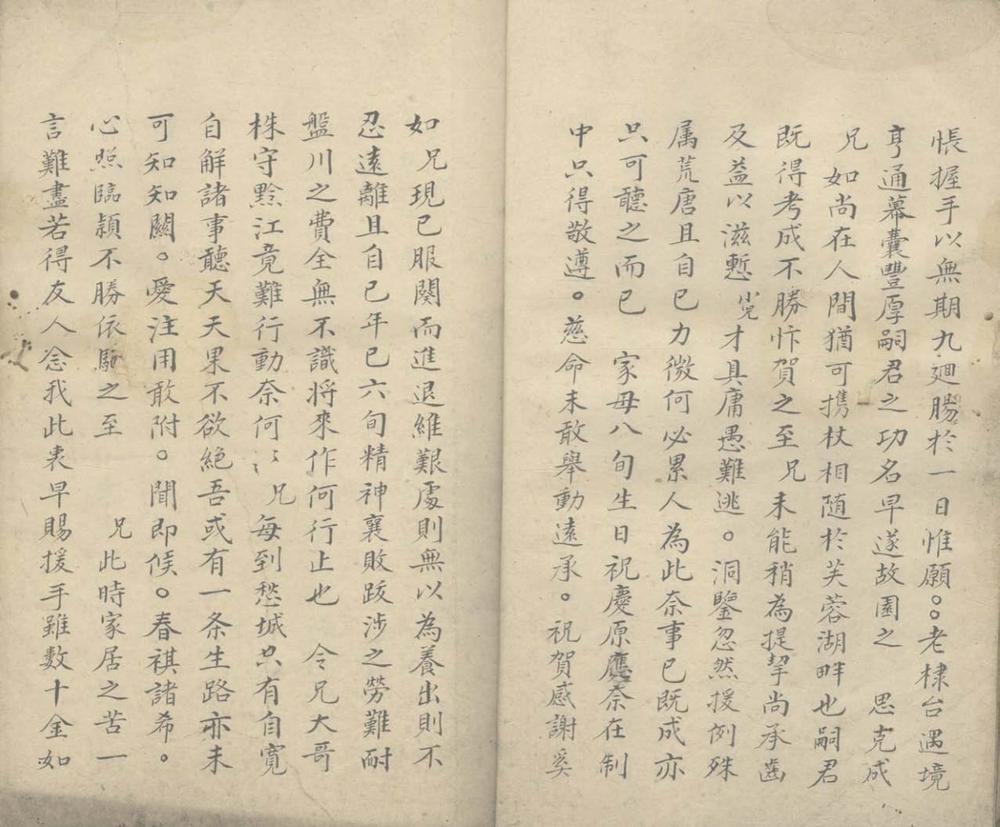 悵握手以無期九廻腸於一日惟願。。老棣台遇境
亨通幕囊豐厚嗣君之功名早遂故園之　思克成
兄　如尚在人間猶可携杖相隨於芙蓉湖畔也嗣君
既得考成不勝忭賀之至　兄未能稍為提挈尚承齒
及益以滋慙　兄才具庸愚難逃。洞鑒忽然援例殊
属荒唐且自己力微何必累人為此奈事已既成亦
只可聽之而已　家母八旬生日祝慶原應奈在制
中只得敬遵。慈命未敢舉動遠承。祝賀感謝奚
如　兄現已服闋而進退維艱處則無以為養出則不
忍遠離且自己年已六旬精神衰敗跋涉之勞難耐
盤川之費全無不識將來作何行止也　令兄大哥
株守黔江竟難行動奈何〻　兄每到愁城只有自寬
自解諸事聽天天果不欲絕吾或有一条生路亦未
可知知關。愛注用敢附。聞即候。春祺諸希。
心照臨頴不勝依馳之至　　兄此時家居之苦一
言難盡若得友人念我此衷早賜援手雖數十金如